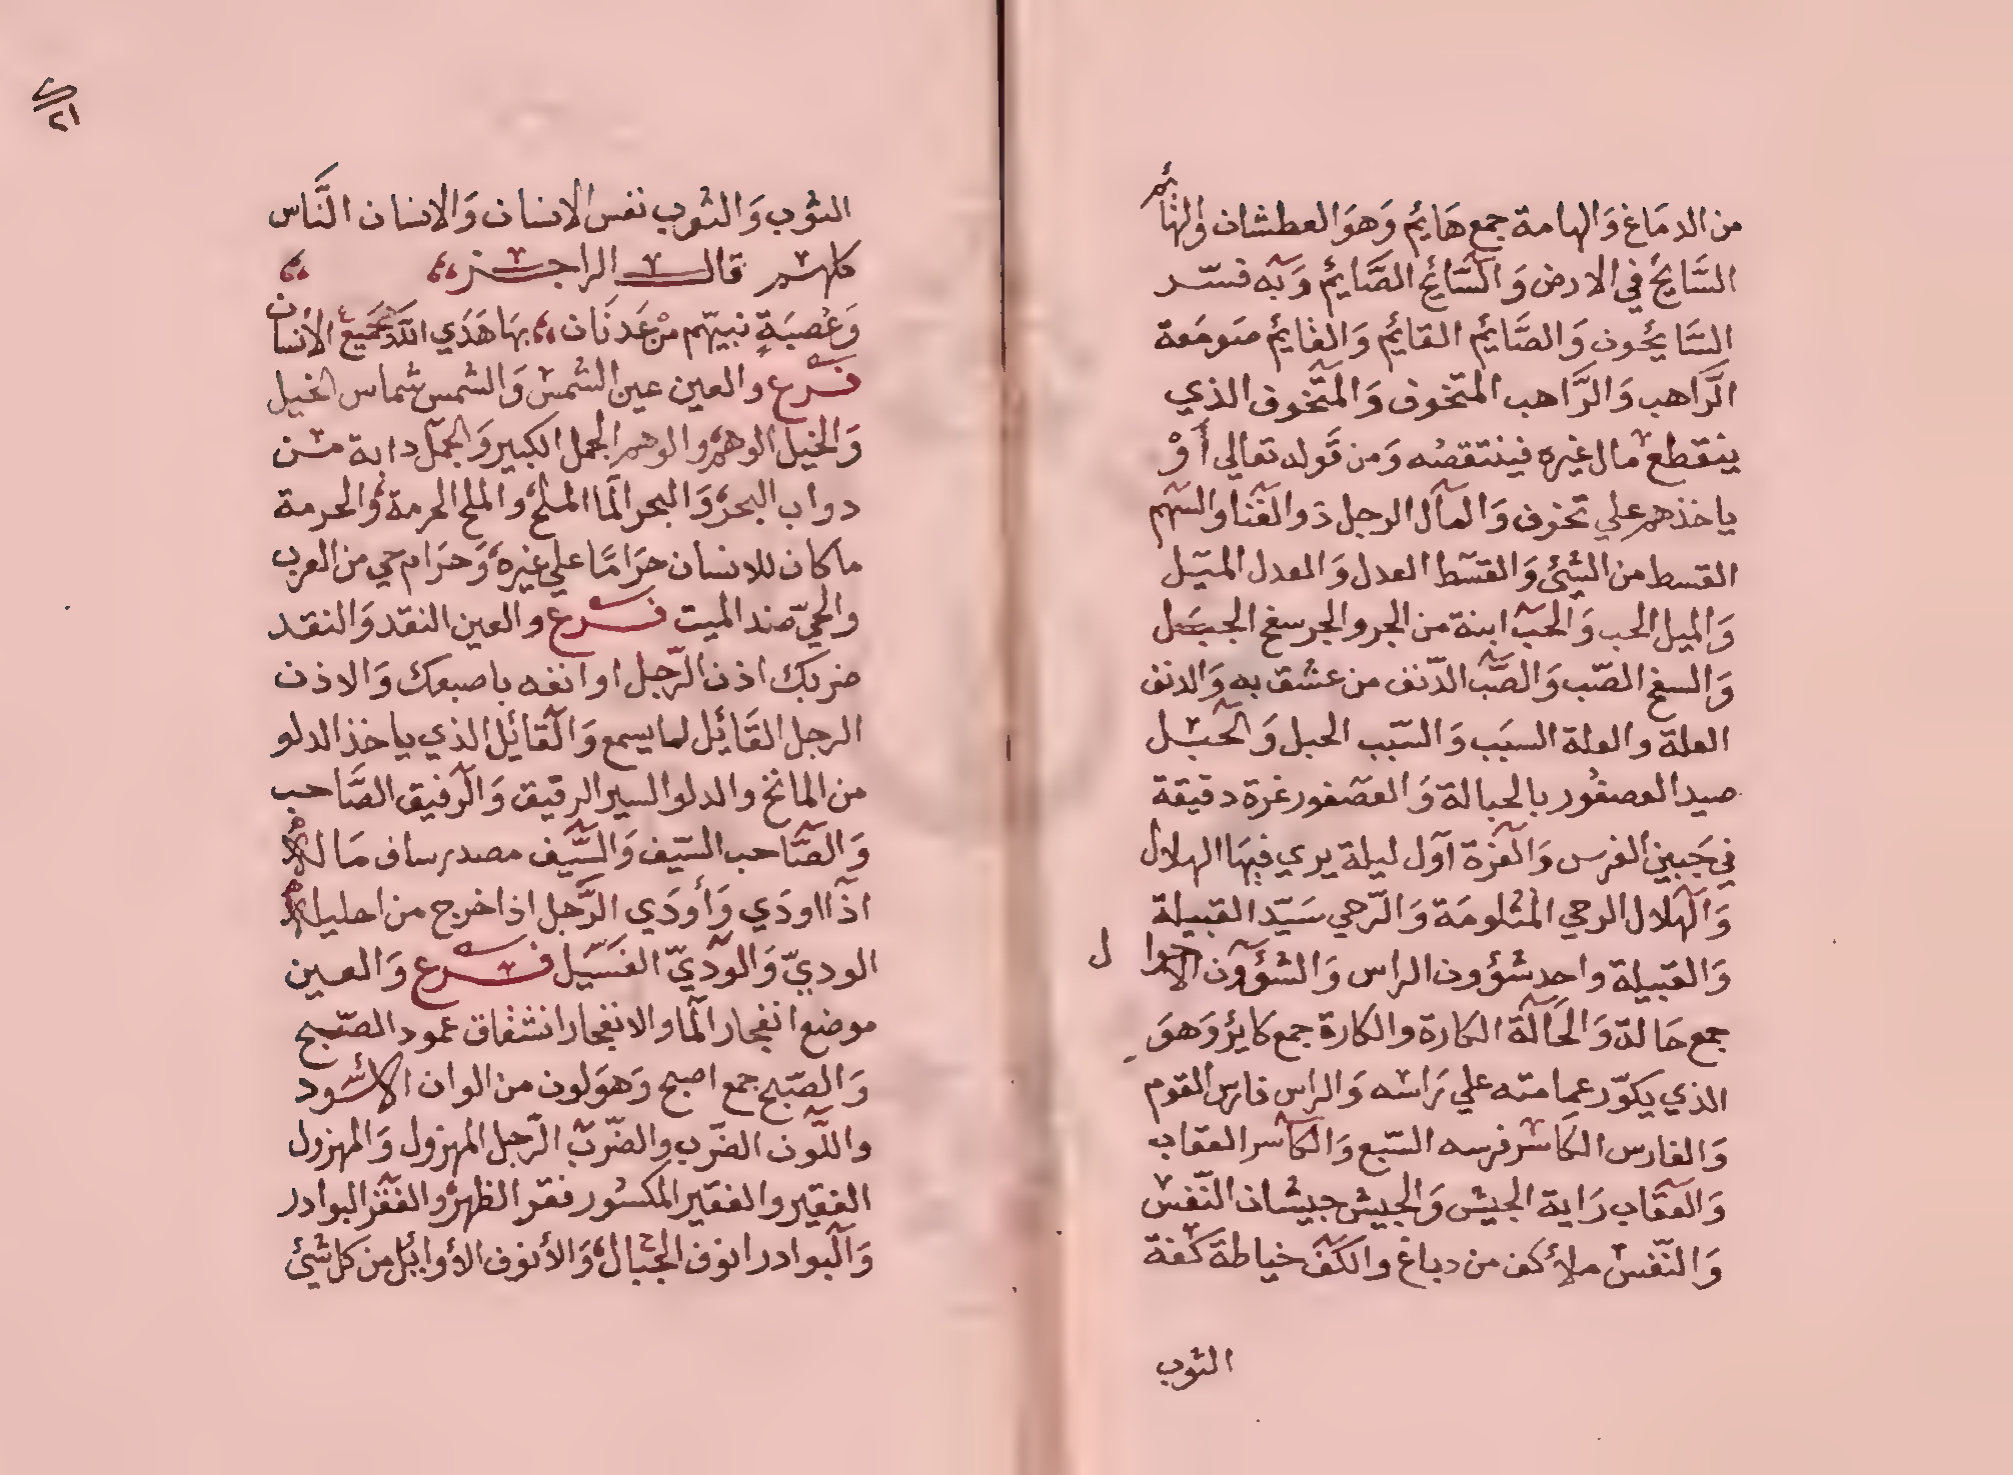 من الدمَاغ وَالهامة جمع هَائم وَهوَ العطشان والهائم
السَّايحٔ في الارض وَالسَّايحٔ الصَّايمٔ وَبه فسّر
السَّايحٔون وَالصَّايمٔ القايمٔ وَالقايمٔ صَومَعة
الرَّاهب وَالرَّاهب المتخوف وَالمتخوف الذي
يقتطع مال غيره فينتقصُه وَمن قَوله تعالي أَوْ
ياخذهم علي تخوف وَالمآل الرجل ذو الغنا والسّهم
القسط من الشئ وَالقسط العدل وَالعدل الميَل
وَالميل الحب وَالحبّ ابنة من الجر والجر سفح الجبَل
وَالسفح الصّب وَالصّب الدّنف من عشق به وَالدنف
العلة والعلة السبَب وَالسّبب الحبل وَالحبْل
صيد العصفُور بالحبالة وَالعصْفور غرة دقيقة
في جَبين الفرس وَالغرّة آول ليلة يري فيهَا الهلال
وَالهلال الرحي المثلومَة وَالرّحي سَيّد القبيلة
وَالقبيلة واحد شؤون الراس وَالشؤون الاحوال
جمع حَالة وَالحَالة الكارة والكارة جمع كايرٔ وَهوَ
الذي يكوّر عمامته علي رَاسْه وَالراس فارس القوم
وَالفارس الكَاسْر فرسه السّبع وَالكاسر العقاب
وَالعقاب رَاية الجيش وَالجيش جيشان النّفس
وَالنّفس ملأ كف من دباغ والكفّ خياطة كَفة
الثوب
٢١
الثوب وَالثوب نفس الانسان وَالانسان النَّاس
كلهم قال الراجز
وَعُصبَةٍ نبيّهم منْ عَدنَان بهَا هَدَي اللّه جَميعَ الأنسان
فرع والعين عين الشمس وَالشمس شماس الخيل
وَالخيل الوهم والوهم الجمل الكبير وَالجمل دابة من
دواب البحر وَالبحر المَا الملح والملح الحرمة والحرمة
ما كان للانسان حرَامًا علي غيره وَحرَام حي من العرب
والحيّ ضد الميت فرع والعين النقد وَالنقد
ضربك اذن الرّجل او انفه باصبعك وَالاذن
الرجل القَابٔل لما يسمع وَالقابٔل الذي ياخذ الدلو
من المائح والدلو السير الرفيق وَالرّفيق الصَّاحب
وَالصَّاحب السّيف وَالسّيف مصدر ساف مَاله
اذآ اودَي وَأودَي الرَّجل اذا خرج من احليله
الوديّ وَالوديّ الفسَيل فرع وَالعين
موضع انفجار المَا والانفجار انشقاق عمود الصّبح
وَالصّبح جمع اصبح وَهوَ لون من الوان الأسْود
واللّون الضرّب والضّربْ الرّجل المهزول وَالمهزول
الفقير والفقير المكسُور فقر الظهر والفقر البوادر
وَالبوادر انوف الجبال وَالأنوف الأوائل من كل شئ